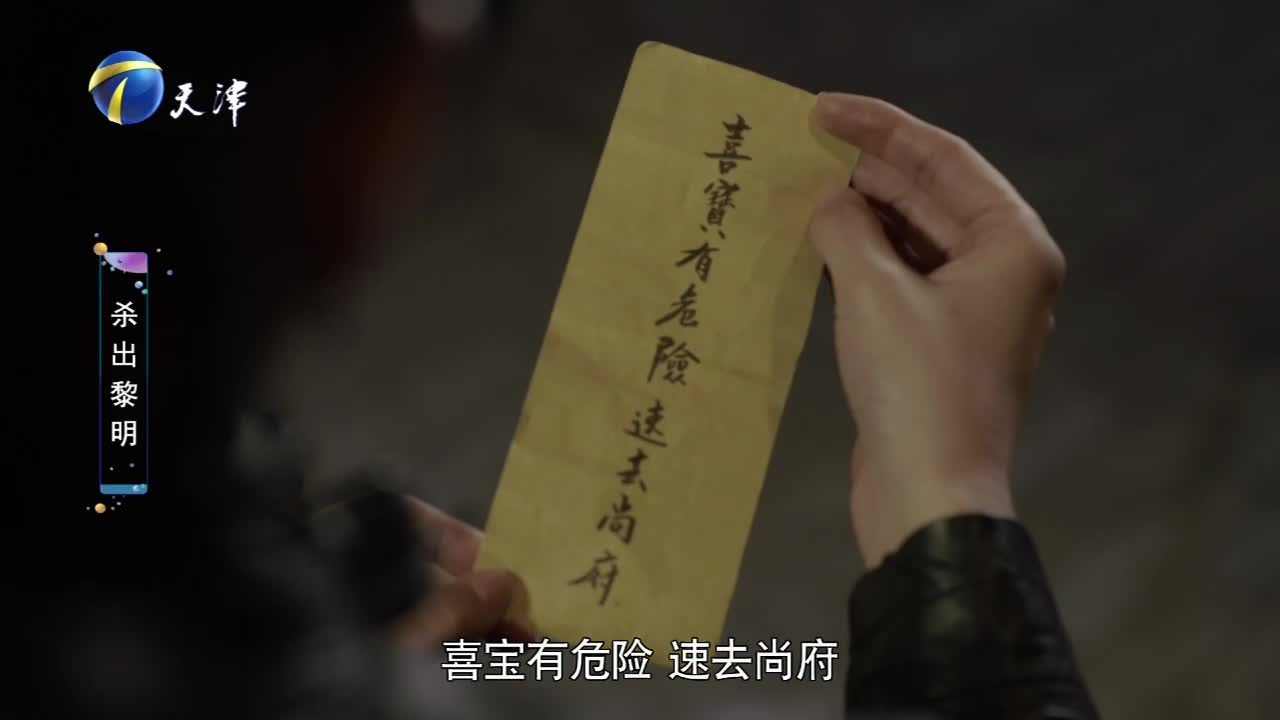 天津
杀出黎明
喜寶有危險速去尚府
喜宝有危险 速去尚府